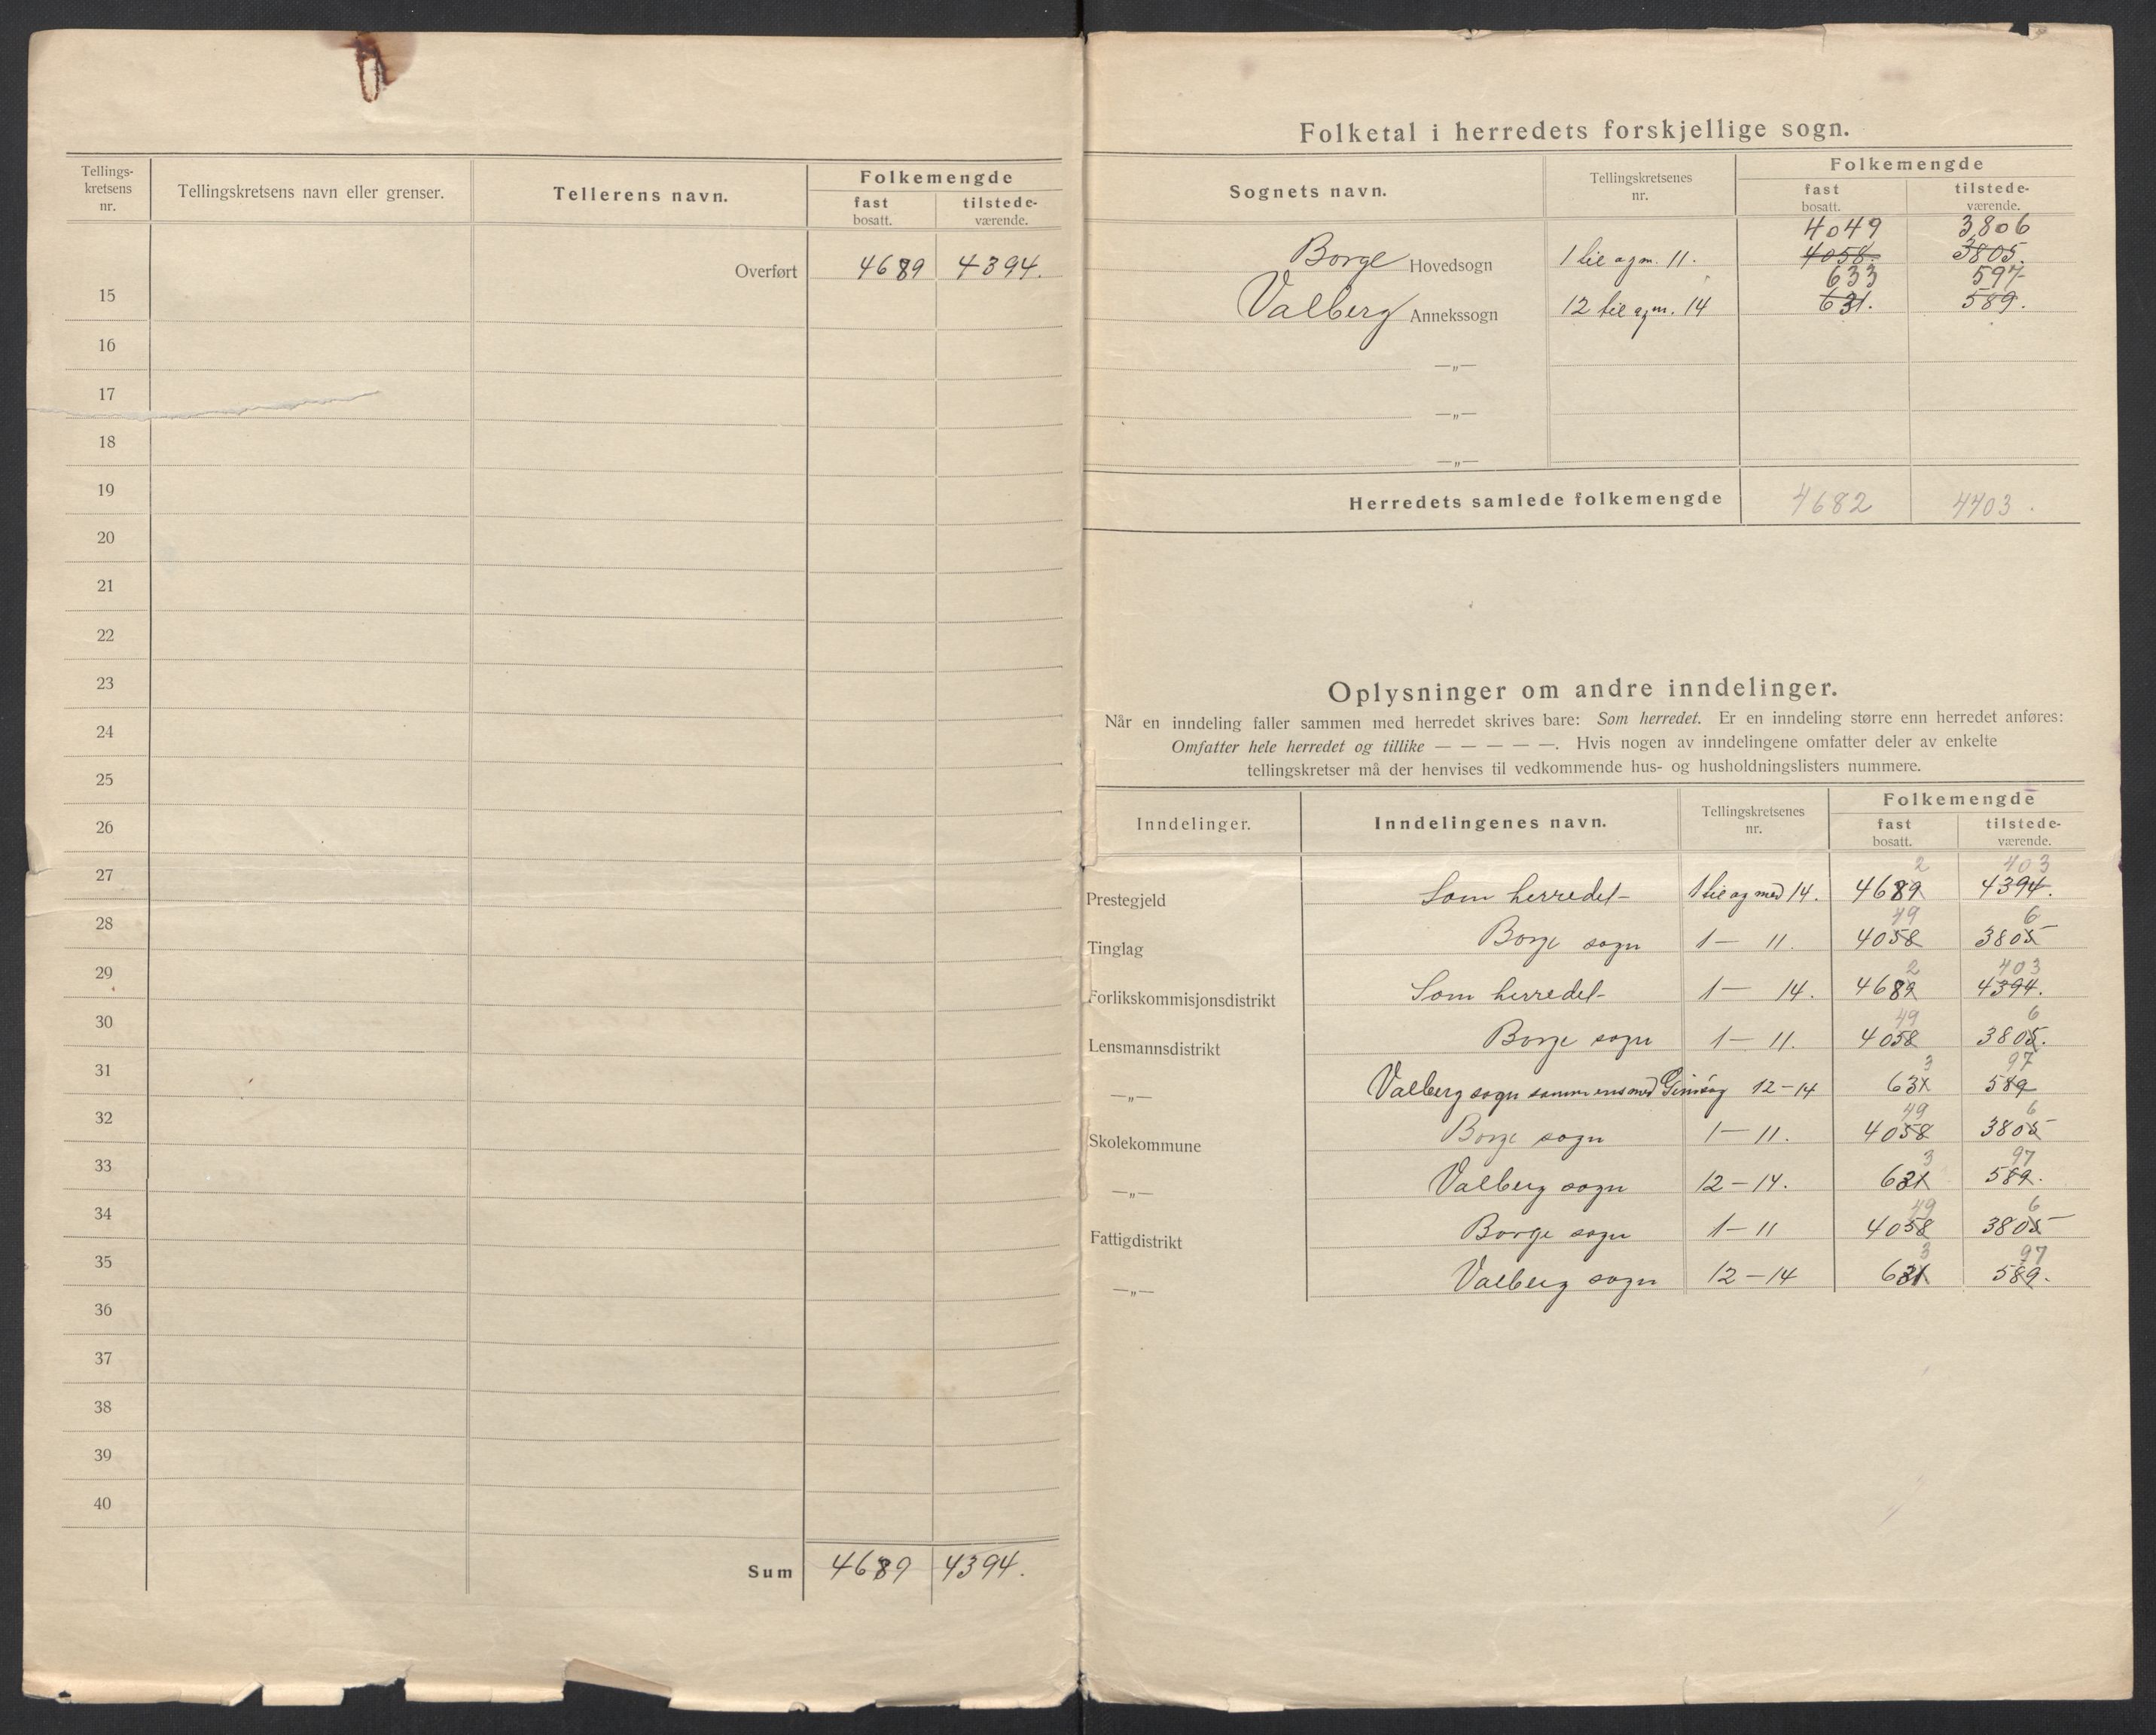 Tellings-
kretsens
nr.
Tellingskretsens navn eller grenser.
Tellerens navn.
Folkemengde
fast
bosatt.
tilstede-
værende.
Overført 4689 4394.
15
16
17
18
19
20
21
22
23
24
25
26
27
28
29
30
31
32
33
34
35
36
37
38
39
40
Sum 4689 4394.
Folketal i herredets forskjellige sogn.
Sognets navn.
Tellingskretsenes
nr.
Folkemengde
fast
bosatt.
tilstede-
værende.
4049 3806
Borge Hovedsogn 1 til ogm. 11. 4058. 3805.
633 597
Valberg Annekssogn 12 til ogm. 14 631. 589.
—„—
—„—
—„—
Herredets samlede folkemengde 4682 4403.
Oplysninger om andre inndelinger.
Når en inndeling faller sammen med herredet skrives bare: Som herredet. Er en inndeling større enn herredet anføres:
Omfatter hele herredet og tillike — — — — —. Hvis nogen av inndelingene omfatter deler av enkelte
tellingskretser må der henvises til vedkommende hus- og husholdningslisters nummere.
Inndelinger.
Inndelingenes navn.
Tellingskretsenes
nr.
Folkemengde
fast
bosatt.
tilstede-
værende.
2 403
Prestegjeld Som herredet 1 til og med 14. 4689 4394.
49 6
Tinglag Borge sogn 1 — 11. 4058 3805
2 403
Forlikskommisjonsdistrikt Som herredet 1 — 14. 4689 4394.
49 6
Lensmannsdistrikt Borge sogn 1 — 11. 4058 3805.
3 97
—„— Valberg sogn sammen med Gimsøy 12 – 14 631 589
49 6
Skolekommune Borge sogn 1 — 11. 4058 3805
3 97
—„— Valberg sogn 12 – 14. 631 589.
49 6
Fattigdistrikt Borge sogn 1 – 11 4058 3805
3 97
—„— Valberg sogn 12 – 14 631 589.